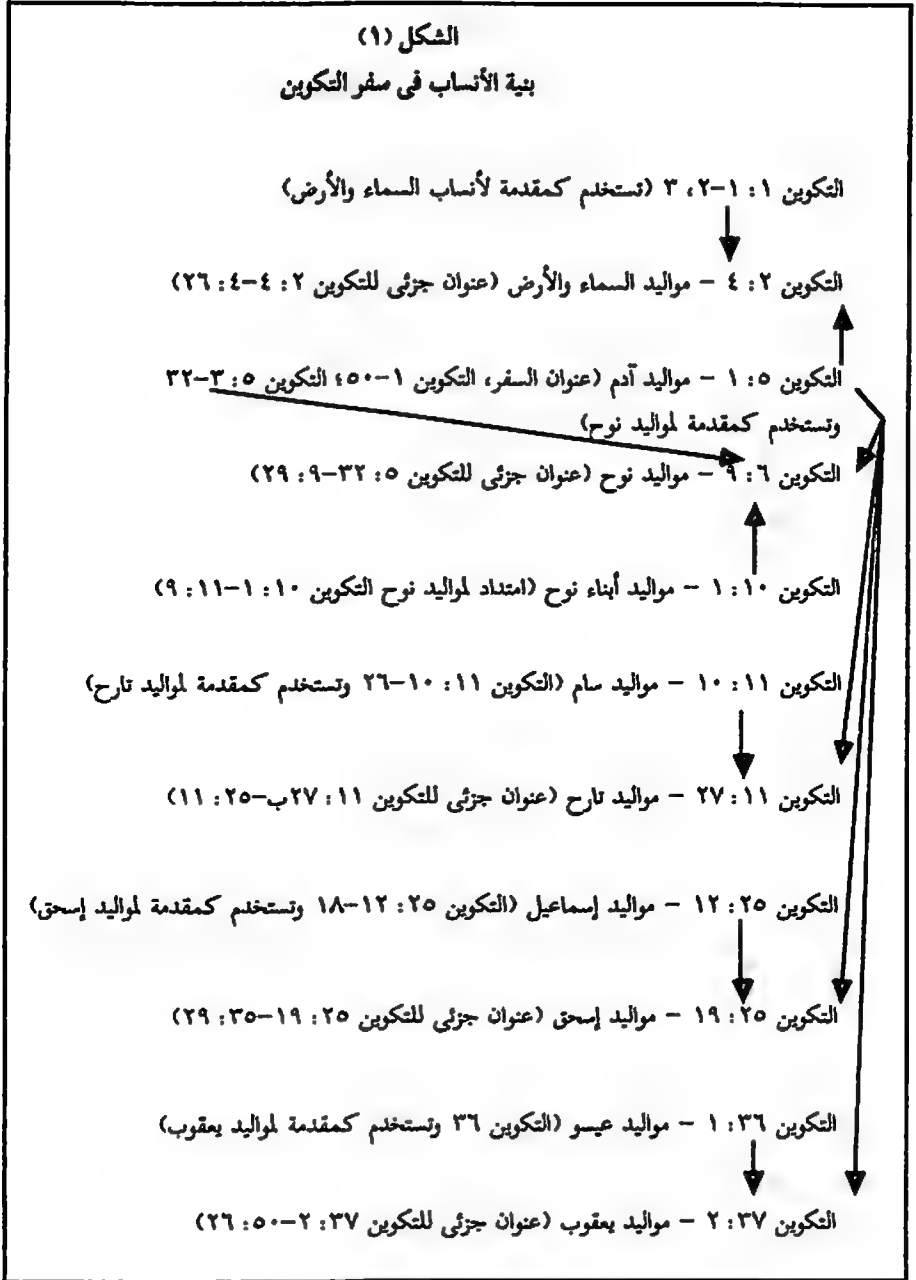 الشكل (١)
بنية الأنساب فى سفر التكوين
التكوين ١: ١-٢، ٣ (تستخدم كمقدمة لأنساب السماء والأرض)
التكوين ٢: ٤ – مواليد السماء والأرض (عنوان جزئى للتكوين ٢: ٤-٤: ٢٦)
التكوين ٥: ١ – مواليد آدم (عنوان السفر، التكوين ١-٥٠؛ التكوين ٥: ٣-٣٢
وتستخدم كمقدمة لمواليد نوح)
التكوين ٦: ٩ – مواليد نوح (عنوان جزئى للتكوين ٥: ٣٢-٩: ٢٩)
التكوين ١٠: ١ – مواليد أبناء نوح (امتداد لمواليد نوح التكوين ١٠: ١-١١: ٩)
التكوين ١١: ١٠ – مواليد سام (التكوين ١١: ١٠-٢٦ وتستخدم كمقدمة لمواليد تارح)
التكوين ١١: ٢٧ – مواليد تارح (عنوان جزئى للتكوين ١١: ٢٧ب-٢٥: ١١)
التكوين ٢٥: ١٢ – مواليد إسماعيل (التكوين ٢٥: ١٢-١٨ وتستخدم كمقدمة لمواليد إسحق)
التكوين ٢٥: ١٩ – مواليد إسحق (عنوان جزئى للتكوين ٢٥: ١٩-٣٥: ٢٩)
التكوين ٣٦: ١ – مواليد عيسو (التكوين ٣٦ وتستخدم كمقدمة لمواليد يعقوب)
التكوين ٣٧: ٢ – مواليد يعقوب (عنوان جزئى للتكوين ٣٧: ٢-٥٠: ٢٦)